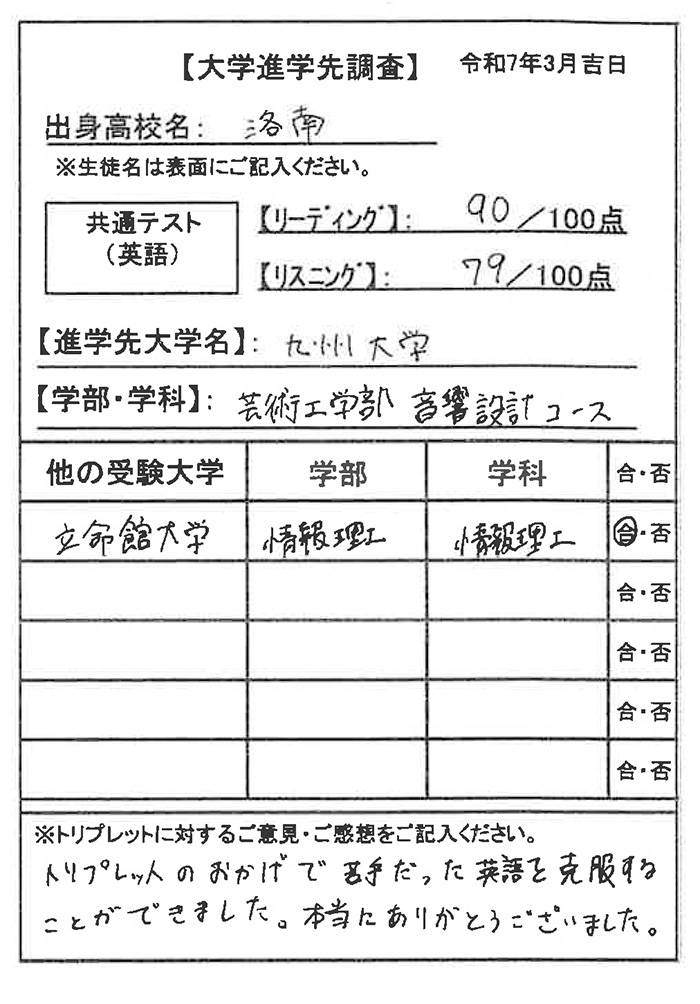 【大学進学先調査】 令和7年3月吉日
出身高校名： 洛南
※生徒名は表面にご記入ください。
共通テスト
（英語）
【リーディング】： 90／100点
【リスニング】： 79／100点
【進学先大学名】： 九州大学
【学部・学科】： 芸術工学部 音響設計コース
他の受験大学 学部 学科 合・否
立命館大学 情報理工 情報理工 合・否
合・否
合・否
合・否
合・否
※トリプレットに対するご意見・ご感想をご記入ください。
トリプレットのおかげで苦手だった英語を克服する
ことができました。本当にありがとうございました。